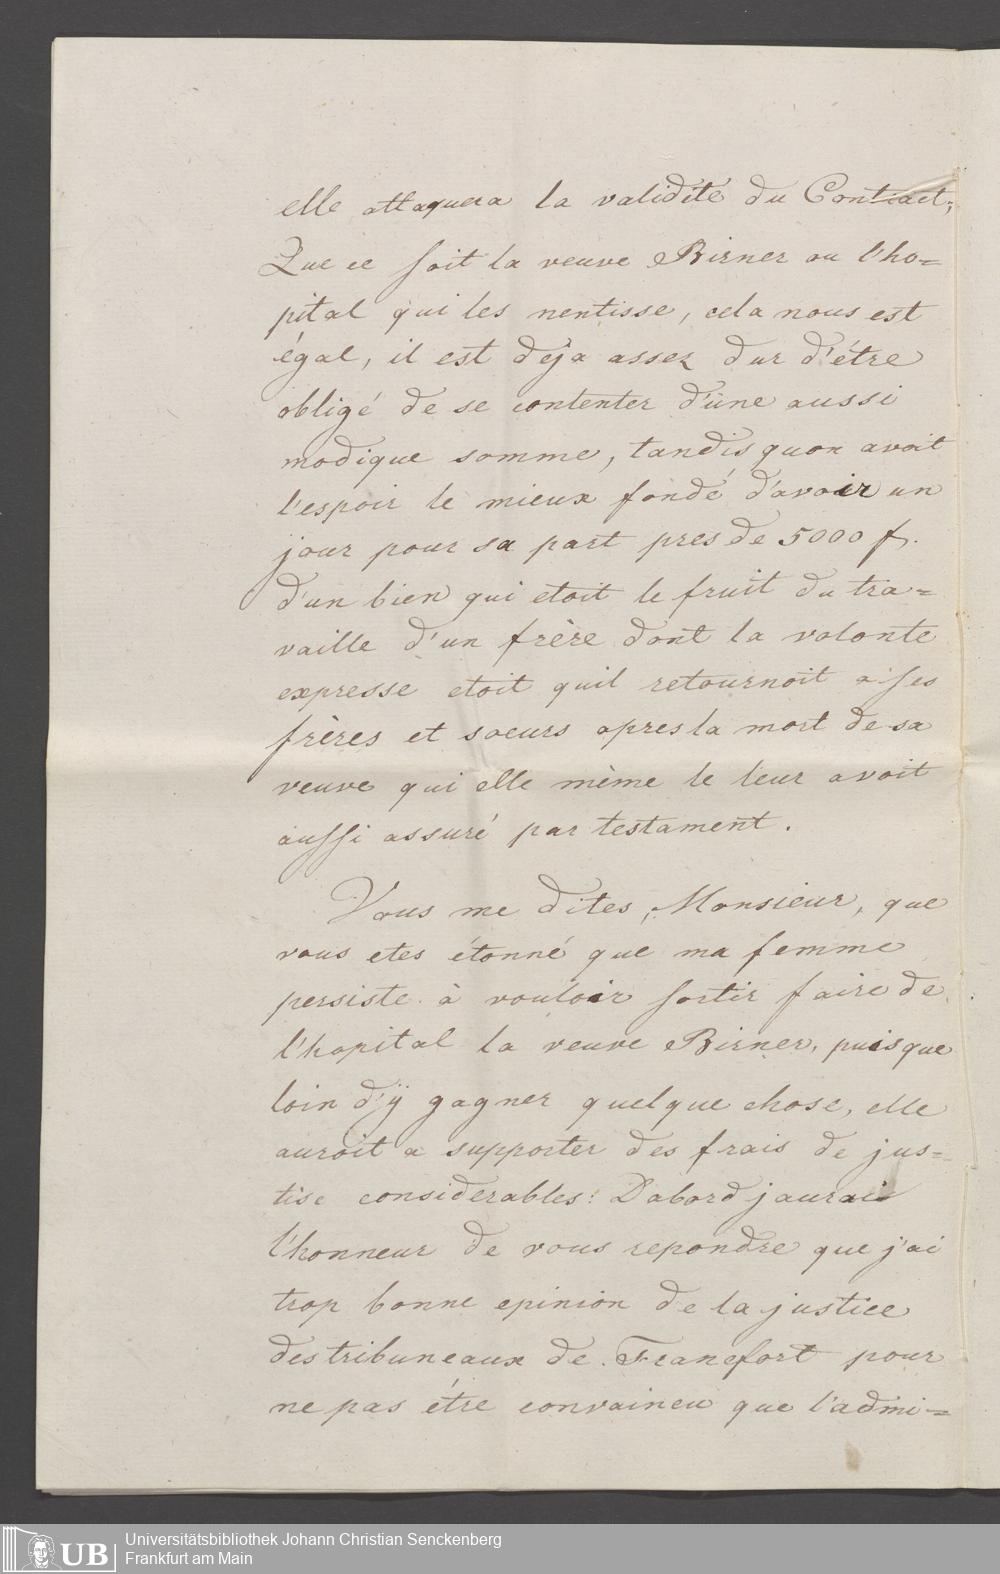 elle attaquera la validité du Contract;
Que ce soit la veuve Birner ou l'ho=
pital qui les nentisse, cela nous est
égal, il est deja assez dur d'étre
obligé de se contenter d'une aussi
modique somme, tandis quon avoit
l'espoir le mieux fondé d'avoir un
jour pour sa part pres de 5000 f.
d'un bien qui etoit le fruit du tra=
vaille d'un frère dont la volonte
expresse etoit quil retournoit a ses
frères et soeurs apres la mort de sa
veuve qui elle mème le leur avoit
aussi assuré par testament.
Vous me dites, Monsieur, que
vous etes étonné que ma femme
persiste à vouloir sortir faire de
l'hopital la veuve Birner, puisque
loin d'ÿ gagner quelque chose, elle
auroit a supporter des frais de jus=
tise considerables: Dabord jaurai
l'honneur de vous repondre que j'ai
trop bonne epinion de la justice
des tribuneaux de Francfort pour
ne pas étre convaincu que l'admi=
UB
Universitätsbibliothek Johann Christian Senckenberg
Frankfurt am Main